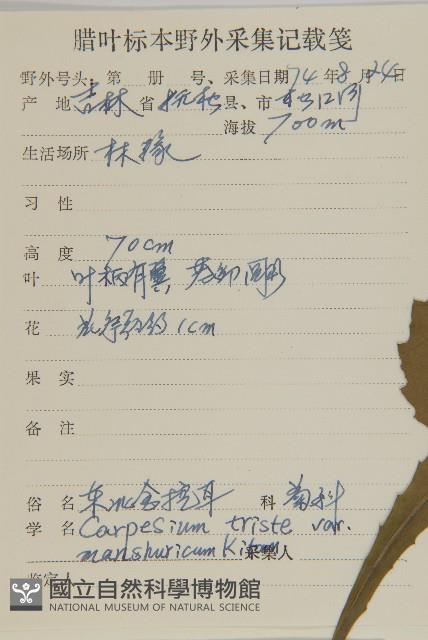 腊叶标本野外采集记载笺
野外号头：第 册 号、采集日期74年8月24日
产 地 吉林 省 抚松 县、市
海拔 700m
生活场所 林缘
习 性
高 度 70cm
叶 叶柄有翼
花 1cm
果 实
备 注
俗 名 东北金挖耳 科 菊科
学 名 Carpesium triste var.
manshuricum Kitam 采集人
鉴定人
國立自然科學博物館
NATIONAL MUSEUM OF NATURAL SCIENCE